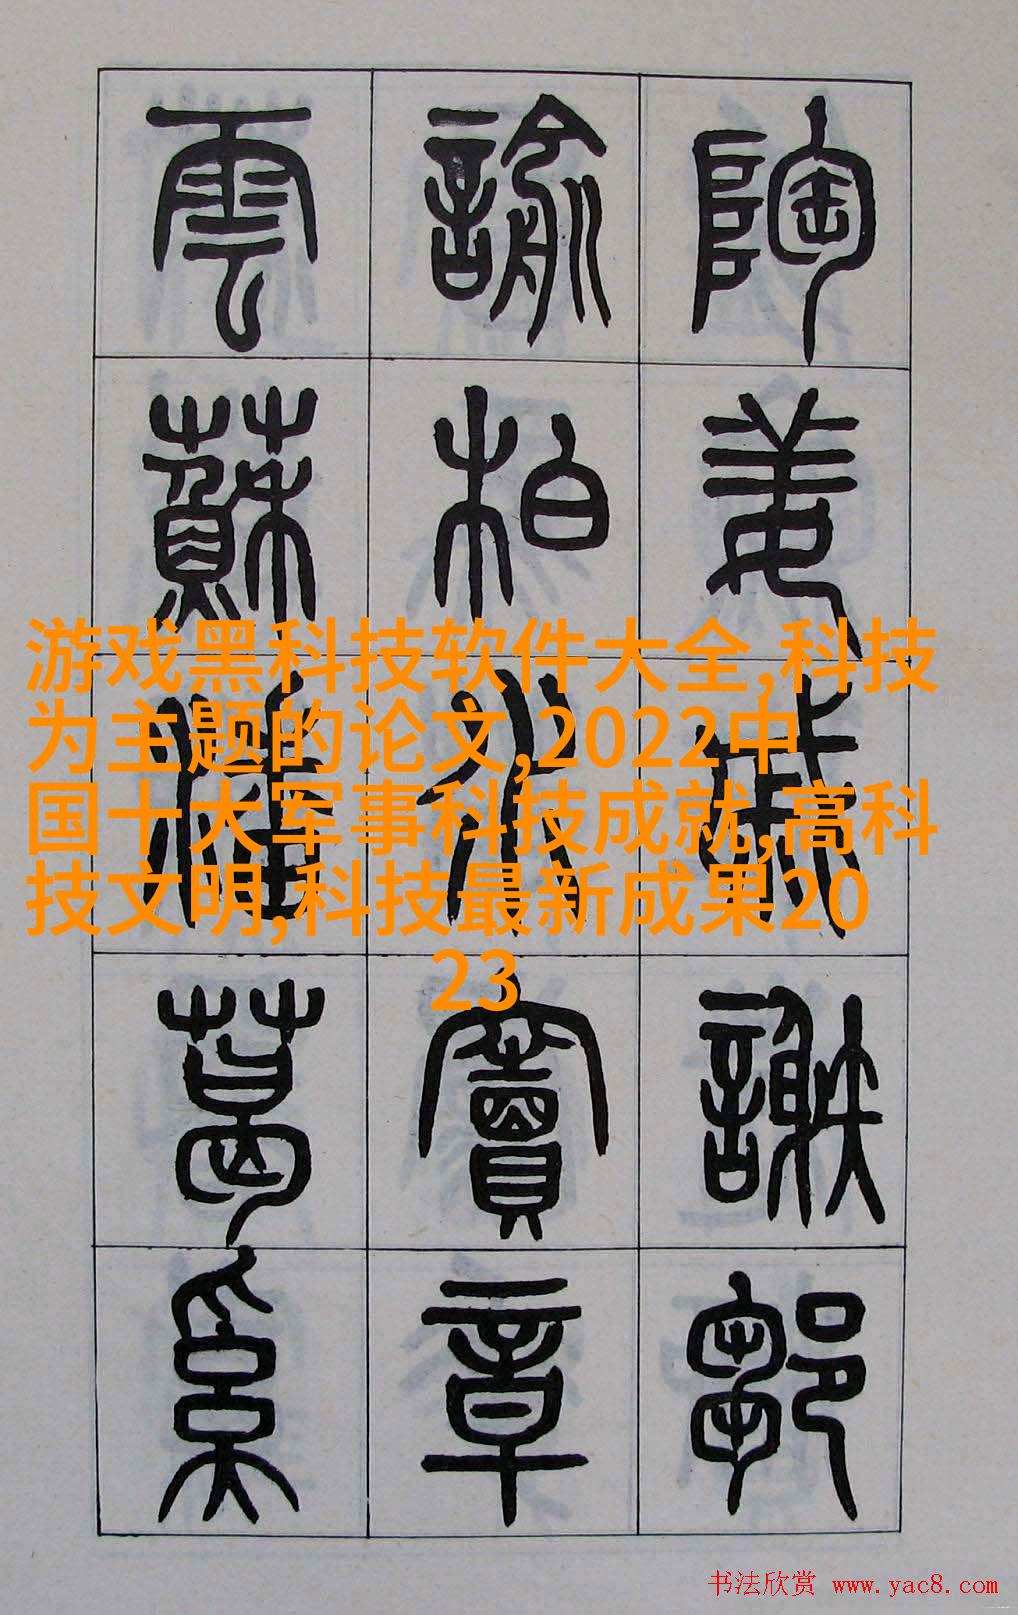 陶姜戚謝鄒
諭柏水竇章
雲蘇潘葛奚
游戏黑科技软件大全,科技
为主题的论文,2022中
国十大军事科技成就,高科
技文明,科技最新成果20
23
书法欣赏 www.yac8.com